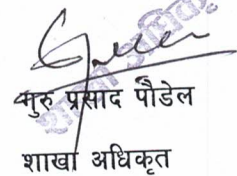 गुरु प्रसाद पौडेल
शाखा अधिकृत